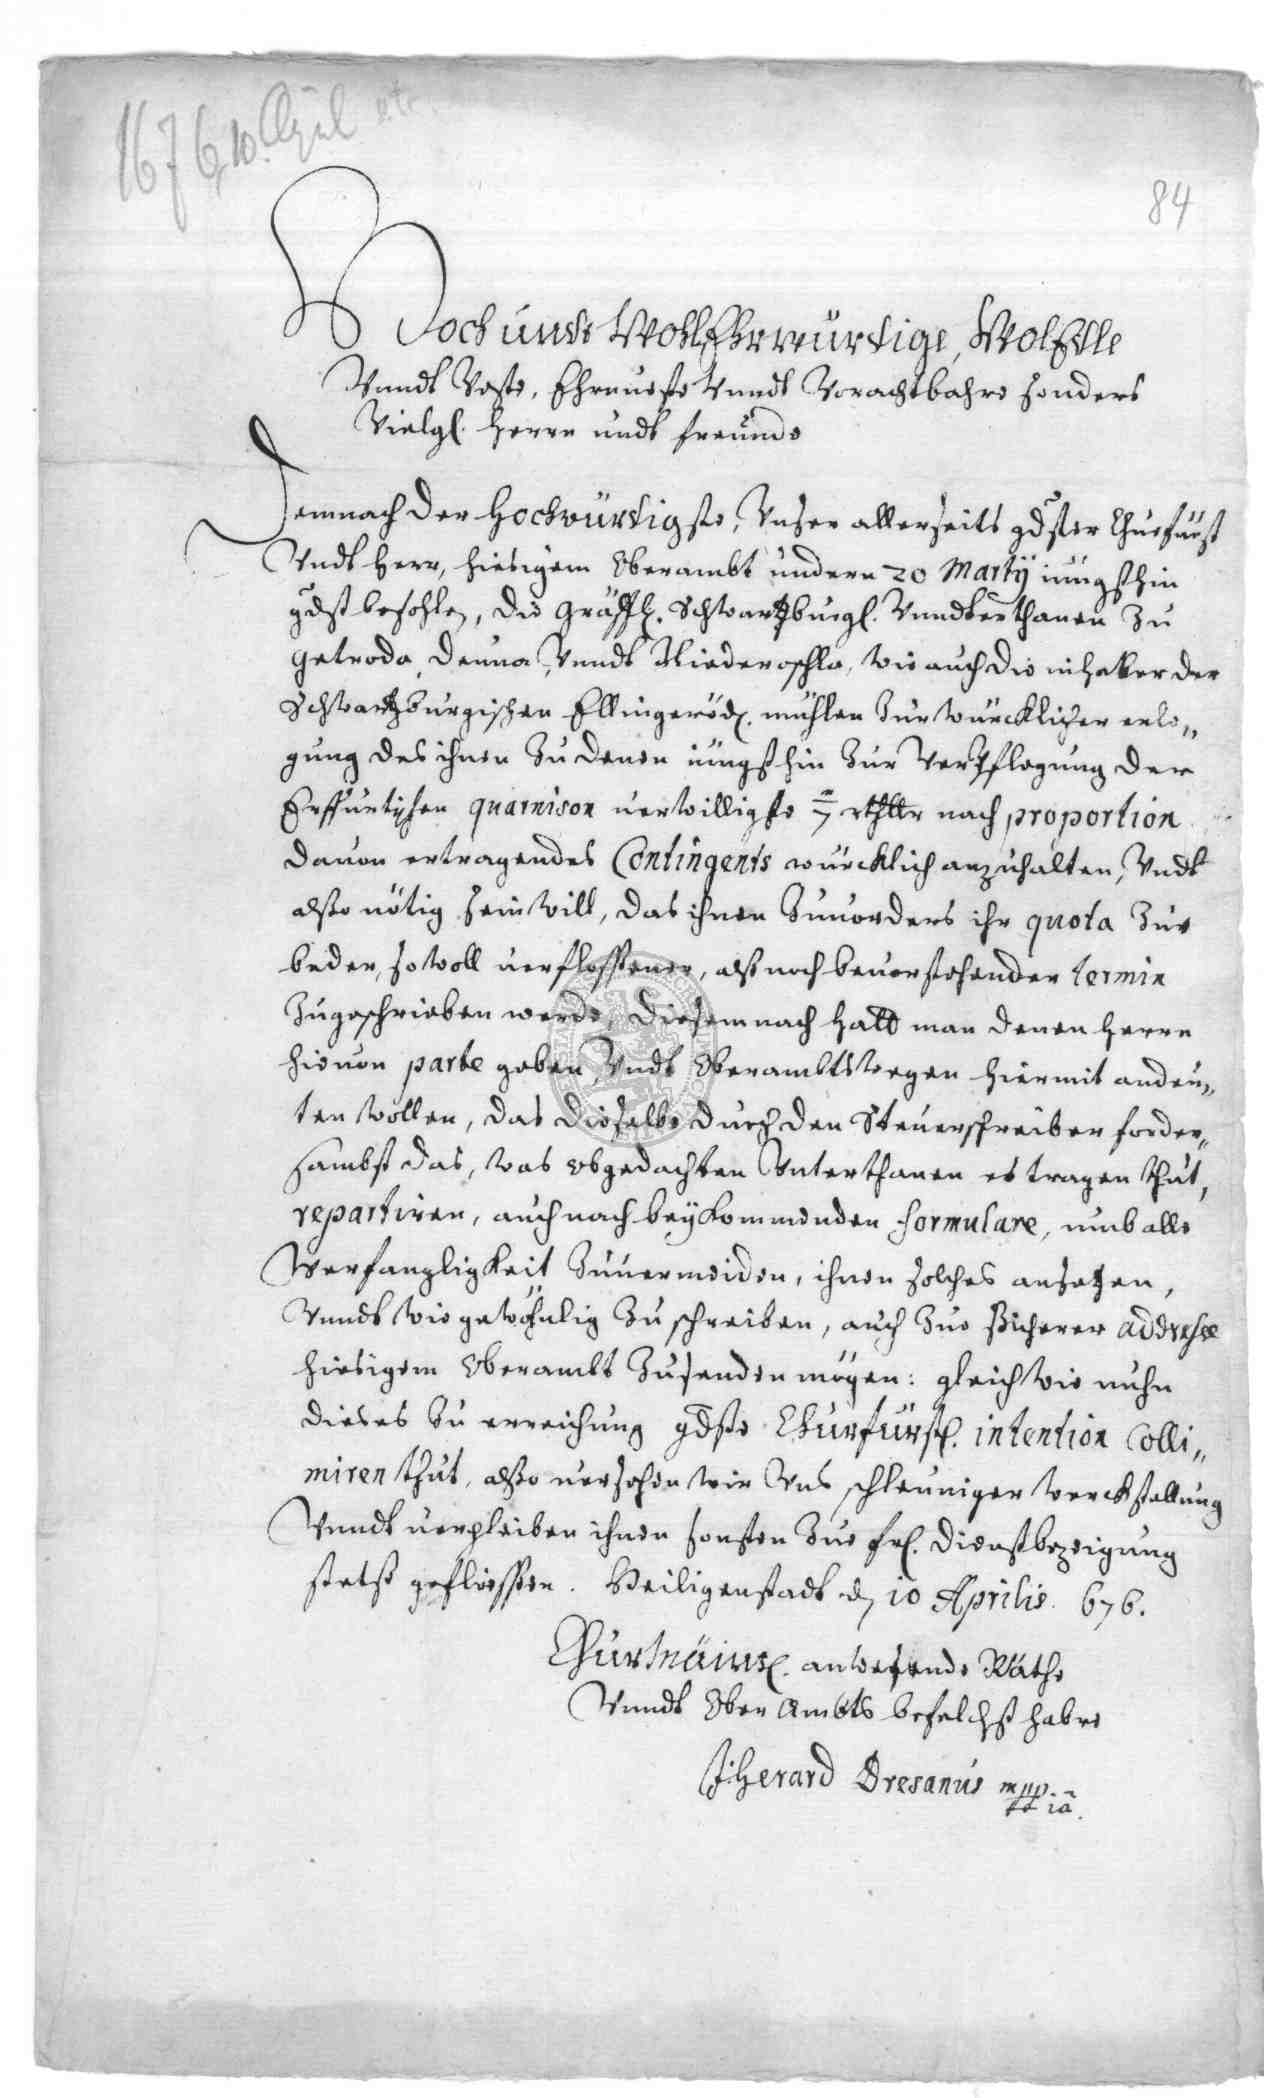 1676, 10. April
84
Hoch undt WohlEhrwürdige, WolEdle
Vundt Veste, Ehrnueste Vundt Vorachtbahre sonders
Vielgl. Herrn undt freunde
Demnach der Hochwürdigste, Vnser allerseits gdster Churfürst
Vndt Herr, hiesigem Oberambt undern 20 Martij iüngsthin
gdst befohlen, die Gräffl. Schwartzburgl. Vundterthanen Zu
Getrode, Deuna, Vundt Niederoschla, wie auch die inhaber der
Schwartzburgischen Ellingeröd. mühlen Zur würcklicher erle„
gung des ihnen Zu denen iüngsthin Zur Verpflegung der
Erffurtischen quarnison verwilligte rthllr nach proportion
dauon ertragendes Contingents würcklich anzuhalten, Vndt
alßo nötig sein will, das ihnen Zuuorders ihr quota Zur
beder, so woll verflossener, alß noch beuorstehender termin
Zugeschrieben werde, Diesemnach hatt man denen Herrn
hieuon parte geben, Vndt Oberambtswegen hiermit andeu„
ten wollen, das dieselbe durch den Steuerschreiber forder„
sambst das, was obgedachten Vnterthanen es tragen thut,
repartiren, auch nach beykommenden formulare, umb alle
Verfangligkeit Zuuermeiden, ihnen solches ansetzen,
Vundt wie gewöhnlig Zu schreiben, auch Zue sicherer addresse
hiesigem Oberambt Zusenden mögen: gleich wie nuhn
dieses Zu erreichung gdste Churfürstl. intention Colli„
miren thut, alßo versehen wir Vns schleuniger werckstellung
Vundt verpleiben ihnen sonsten Zue frl. Dienstbezeigung
stetß geflissen. Heiligenstadt d. 10 Aprilis. 676.
Churmäintz. anwesende Räthe
Vundt Ober Ambts befelchst habre
JHerard Dresanus mpp
ia.